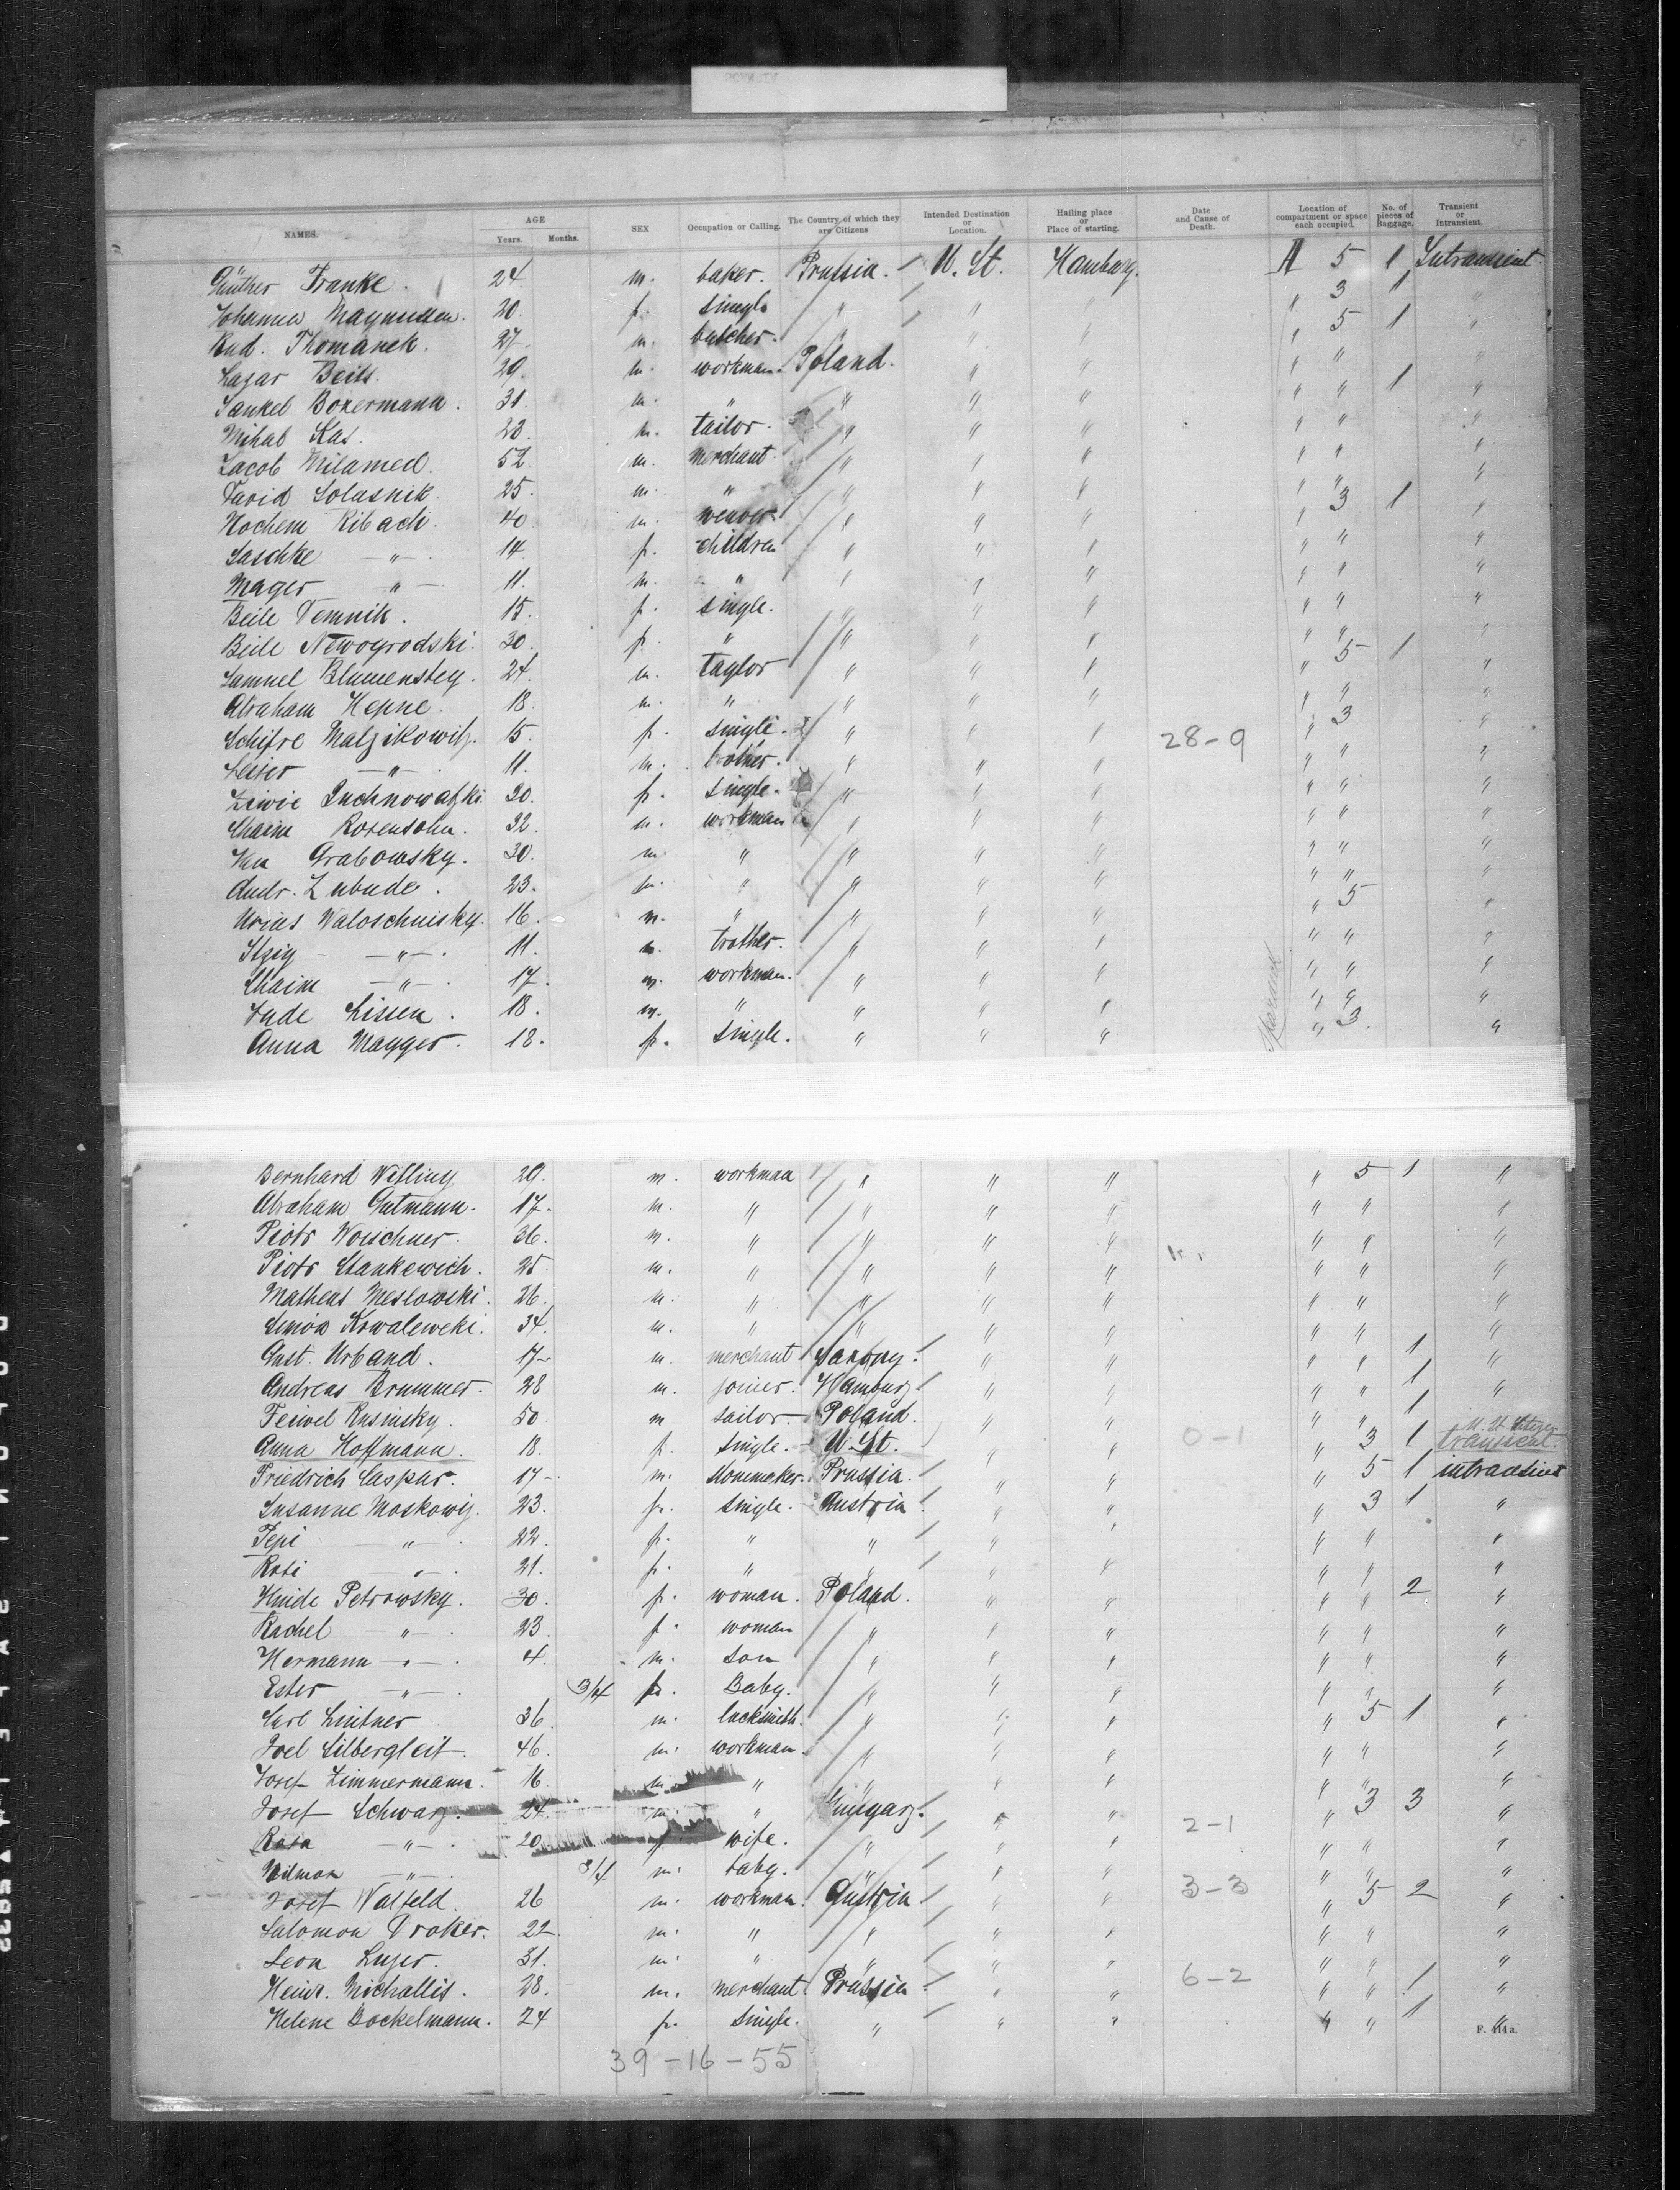 NAMES. AGE Years. Months. SEX Occupation or Calling. The Country of which they are Citizens Intended Destination or Location. Hailing place or Place of starting. Date and Cause of Death. Location of compartment or space each occupied. No. of pieces of Baggage. Transient or Intransient.
Günther Franke. 24 m. baker. Prussia. U. St. Hamburg. A 5 1 Intransient
Johanna Magnussen. 20. f. single " " " " 3 1 "
Rud. Thomanek. 27. m. butcher. " " " " 5 1 "
Lazar Beils. 29. m. workman. Poland. " " " " "
Jankel Boxermann. 31. m. " " " " " " 1 "
Mihal Kas. 23. m. tailor. " " " " " "
Jacob Milamed. 52. m. merchant. " " " " " "
David Solasnik. 25. m. " " " " " " "
Nochem Ribach. 40. m. weaver. " " " " 3 1 "
Saschke — " — 14. f. children " " " " " "
Mager — " — 11. m. " " " " " " "
Beile Temnik. 15. f. single. " " " " " "
Beile Newogrodski. 30. f. " " " " " " "
Samuel Blumensteg. 24. m. taylor " " " " 5 1 "
Abraham Hepne. 18. m. " " " " " " "
Schifre Malzikowitz. 15. f. single. " " " 28-9 " 3 "
Leiser — " — 11. m. brother. " " " " " "
Ziwie 20. f. single. " " " " " "
Chaim Rosensohn. 32. m. workman " " " " " "
Jan Grabowsky. 30. m. " " " " " " "
Andr. Zubude. 23. m. " " " " " " "
Urias Waloschinsky. 16. m. " " " " " 5 "
Itzig — " — 11. m. brother. " " " " " "
Chaim — " — 17. m. workman. " " " " " "
Jude Lissen. 18. m. " " " " " " "
Anna Magger. 18. f. single. " " " " 3. "
Bernhard Witling 29. m. workman " " " " 5 1 "
Abraham Gutmann. 17. m. " " " " " " "
Piotr Woischner. 36. m. " " " " " " "
Piotr Stankewich. 25. m. " " " " " " "
Matheus Meslowski. 26. m. " " " " " " "
Simon Kowaleweki. 34. m. " " " " " " "
Gust. Urband. 17. m. merchant Saxony. " " " " 1 "
Andreas Brummer. 28 m. joiner. Hamburg " " " " 1 "
Feiwel Rusinsky. 50 m sailor Poland. " " " " 1 "
Anna Hoffmann. 18. f. single. U St. " " 0-1 " 3 1 U. St. Citizen transient.
Friedrich Caspar. 17 m. Prussia. " " " 5 1 intransient
Susanne Moskowiz. 23. f. single. Austria. " " " 3 1 "
Pepi — " — 22. f. " " " " " " "
Rosi " 21. f. " " " " " " "
Hinde Petrowsky. 30. f. woman. Poland. " " " " 2 "
Rachel — " — 23. f. woman " " " " " "
Hermann — " — 4. m. son " " " " " "
Ester — " — 3/4 f. Baby. " " " " " "
Carl Lintner 36. m. locksmith. " " " " 5 1 "
Joel Silbergleit. 46. m. workman " " " " " "
Josef Zimmermann. 16 m. " " " " " " "
Josef Schwarz. 24. m. " Hungary. " " 2-1 " 3 3 "
Rosa — " — 20. f. wife. " " " " " "
— " — 3/4 m. baby. " " " " " "
Josef Walfeld. 26 m. workman. Austria " " 3-3 " 5 2 "
Salomon Droker. 22 m. " " " " " " "
Leon 31. m. " " " " " " "
Heinr. Michallis. 28. m. merchant Prussia " " 6-2 " " 1 "
Helene Bockelmann. 24 f. single. " " " " " 1 "
F. 414a.
39-16-55